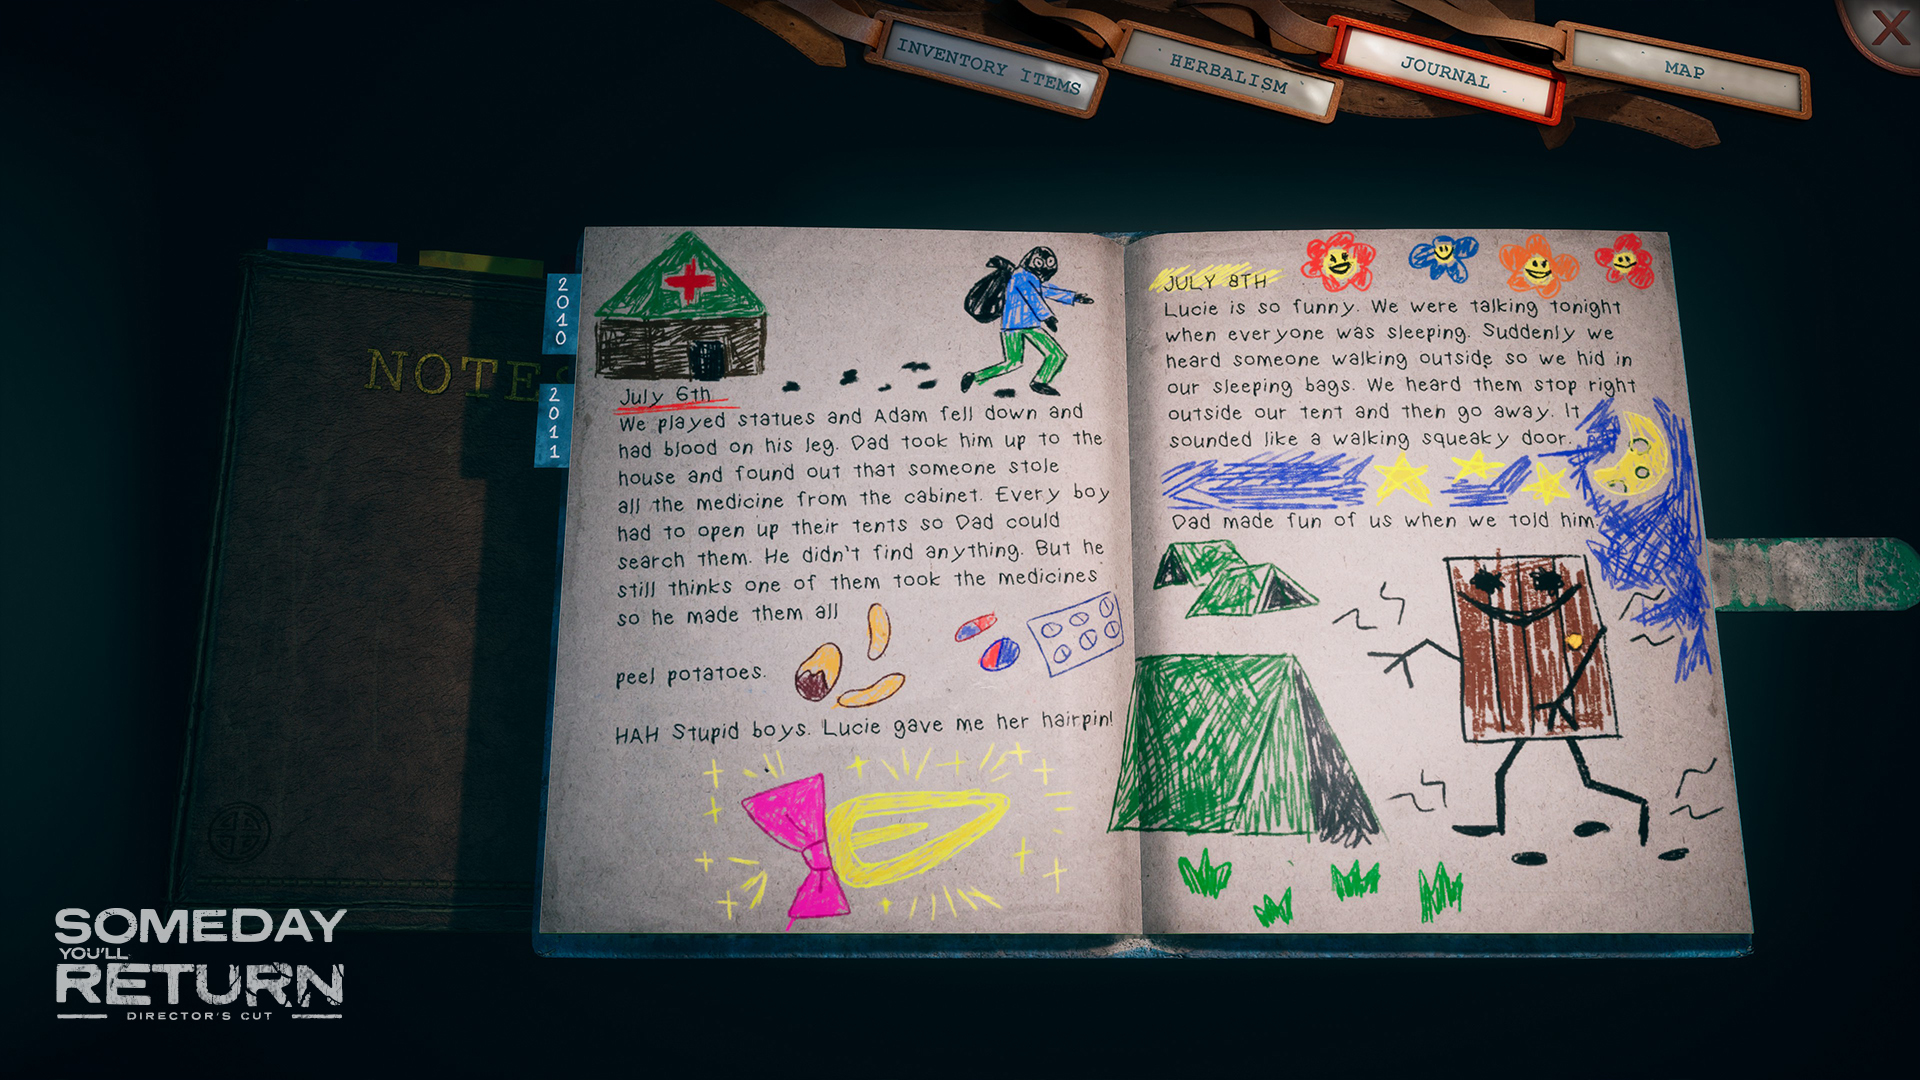 INVENTORY ITEMS
HERBALISM
JOURNAL
MAP
NOTE
2010
2011
July 6th
We played statues and Adam fell down and
had blood on his leg. Dad took him up to the
house and found out that someone stole
all the medicine from the cabinet. Every boy
had to open up their tents so Dad could
search them. He didn't find anything. But he
still thinks one of them took the medicines
so he made them all
peel potatoes.
HAH Stupid boys. Lucie gave me her hairpin!
JULY 8TH
Lucie is so funny. We were talking tonight
when everyone was sleeping. Suddenly we
heard someone walking outside so we hid in
our sleeping bags. We heard them stop right
outside our tent and then go away. It
sounded like a walking squeaky door.
Dad made fun of us when we told him.
SOMEDAY
YOU'LL
RETURN
DIRECTOR'S CUT